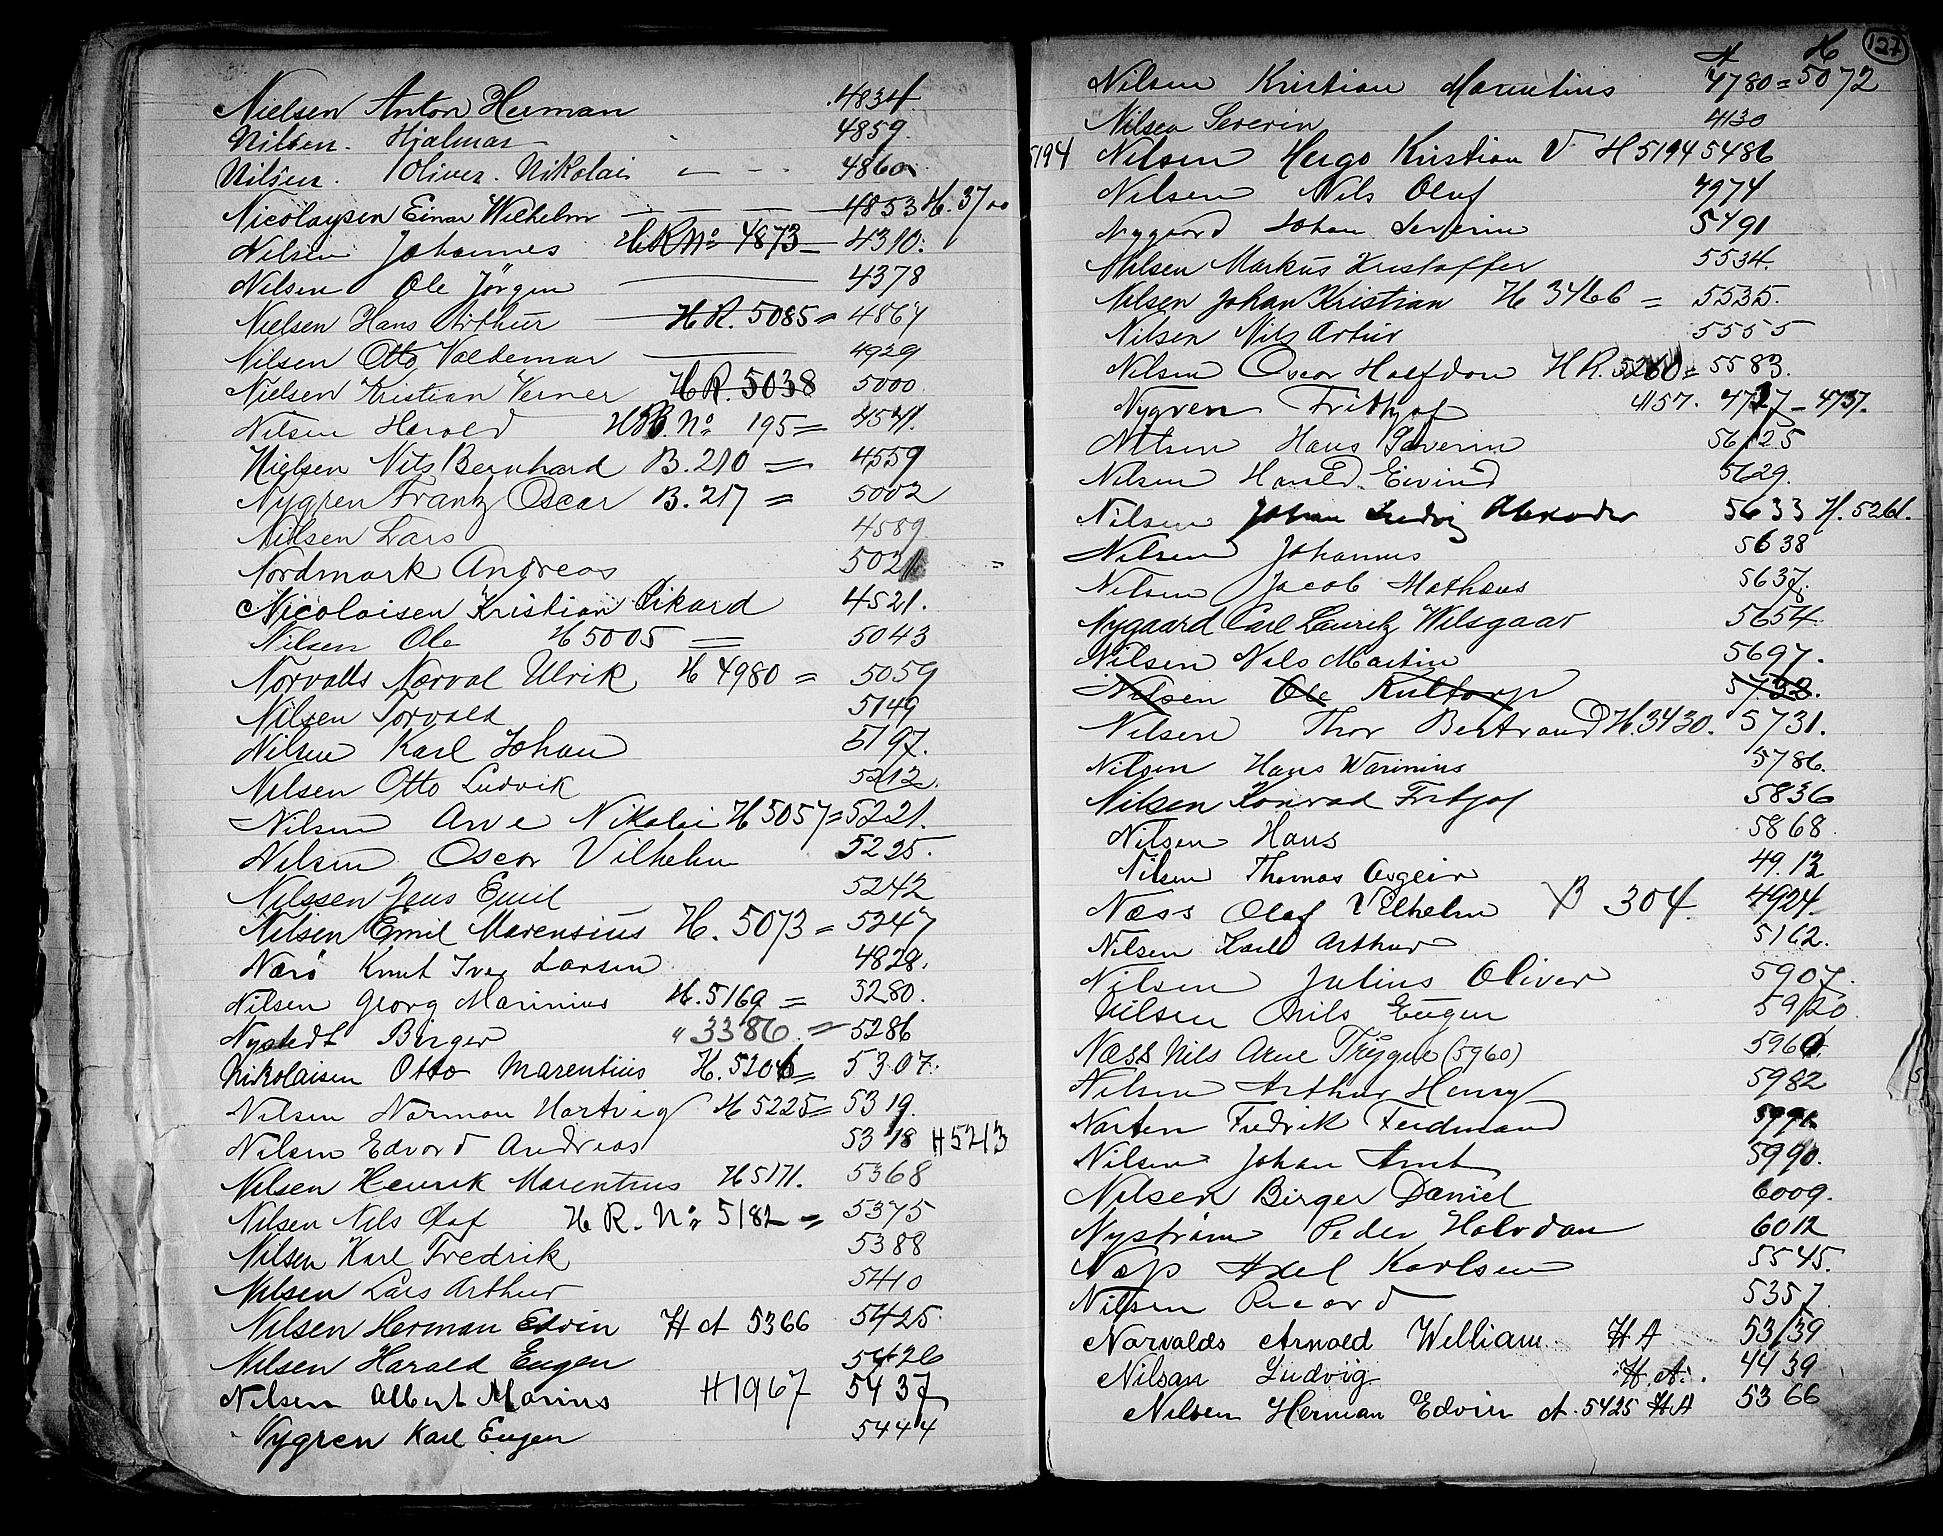 Nielsen Anton Herman 4834
Nilsen. Hjalmar 4859.
Nilsen. Oliver. Nikolai 4860
Nicolaysen Einar Wilhelm 4853 H. 3700
Nilsen Johannes HR No 4873 - 4310.
Nilsen Ole Jörgen 4378
Nielsen Hans Arthur HR. 5085 = 4867
Nilsen Otto Valdemar 4929
Nielsen Kristian Verner HR. 5038 5000
Nilsen Harald No 195 = 4541.
Nielsen Nils Bernhard B. 210 = 4559
Nygren Frantz Oscar B. 217 = 5002
Nilsen Lars 4589
Nordmark Andreas 5021
Nicolaisen Kristian Rikard 4521.
Nilsen Ole H 5005 = 5043
Norvalls Norval Ulrik H 4980 = 5059
Nilsen Torvald 5149
Nilsen Karl Johan 5197.
Nilsen Otto Ludvik 5212.
Nilsen Arve Nikolai H 5057 = 5221.
Nilsen Oscar Vilhelm 5225.
Nilssen Jens Emil 5242
Nilsen Emil Marensius H. 5073 = 5247
Næsö Knut Iver Larsen 4828.
Nilsen Georg Marinius H. 5169 = 5280.
Nystedt Birger " 3386 = 5286
Nikolaisen Otto Marentius H. 5206 = 5307.
Nilsen Norman Hartvig H 5225 = 5319.
Nilsen Edvard Andreas 5318 H 5213
Nilsen Henrik Marentius H 5171. 5368
Nilsen Nils Olaf H R. No 5182 = 5375
Nilsen Karl Fredrik 5388
Nilsen Lars Arthur 5410
Nilsen Herman Edvin H A 5366 5425.
Nilsen Harald Eugen 5426
Nilsen Albert Marius H 1967 5437
Nygren Karl Eugen 5444
127
A H
Nilsen Kristian Marentius 4780 = 5072
Nilsen Severin 4130
5194 Nilsen Helge Kristian V H 5194 5486
Nilsen Nils Oluf 4974
Nygaard Johan Severin 5491
Nilsen Markus Kristoffer 5534.
Nilsen Johan Kristian H 3466 = 5535.
Nilsen Nils Artur 5555
Nilsen Oscar Halfdan H R. 5260 = 5583.
Nygren Frithjof 4157. 4727 - 4737.
Nilsen Hans Severin 5625
Nilsen Harald Eivind 5629.
Nilsen Johan Ludvig Alexander 5633 H. 5261.
Nilsen Johannes 5638
Nilsen Jacob Mathæus 5637.
Nygaard Carl Lauritz Wilsgaar 5654.
Nilsen Nils Martin 5697.
Nilsen Ole Kultorp 5730.
Nilsen Thor Bertrand H. 3430. 5731.
Nilsen Hans Warinius 5786.
Nilsen Konrad Fritjof 5836
Nilsen Hans 5868.
Nilsen Thomas Asgeir 49.13
Næss Olaf Vilhelm B 304. 4924.
Nilsen Karl Arthur 5162.
Nilsen Julius Oliver 5907.
Nilsen Nils Eugen 5920
Næss Nils Arne Trygve (5960) 5960.
Nilsen Arthur Henry 5982
Narten Fredrik Ferdinand
Nilsen Johan Arnt 5990.
Nilsen Birger Daniel 6009.
Nystrøm Peder Halvdan 6012
Næss Axel Karlsen 5545.
Nilsen Ricard 5357.
Norvalds Arnold William H A 5339
Nilsen Ludvig H. A. 4439
Nilsen Herman Edvin A. 5425 HA 5366